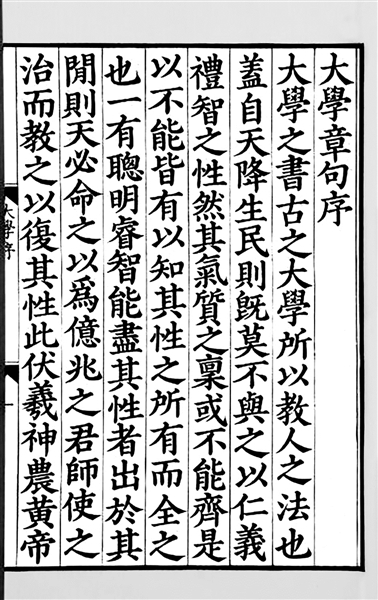 大學章句序
大學之書古之大學所以教人之法也
蓋自天降生民則既莫不與之以仁義
禮智之性然其氣質之稟或不能齊是
以不能皆有以知其性之所有而全之
也一有聰明睿智能盡其性者出於其
閒則天必命之以爲億兆之君師使之
治而教之以復其性此伏羲神農黃帝
大學序
一